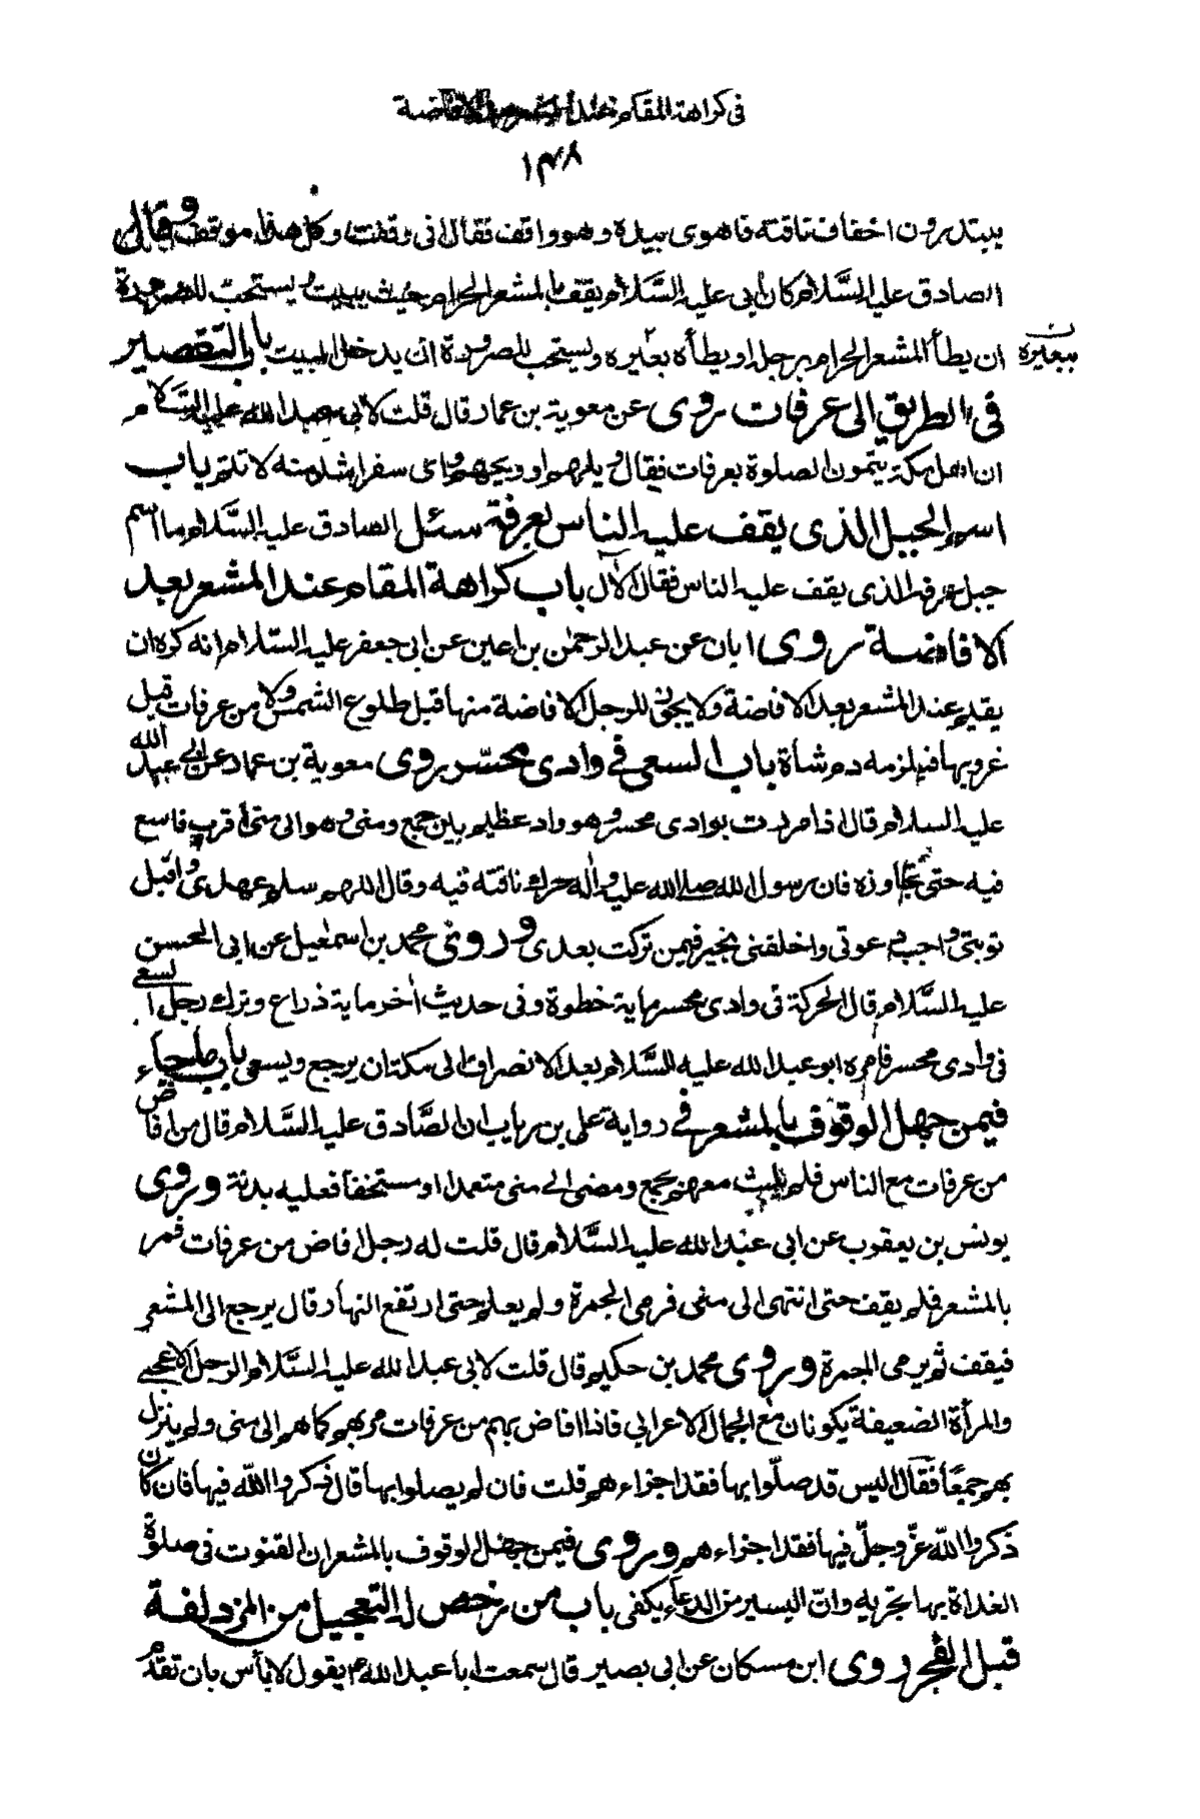 فى كراهة المقام عند المشعر بعد الافاضة
١٣٨
يبتدرون اخفاف ناقته فاهوى بيده وهو واقف فقال انى وقفت وكل هذا موقف وقال
الصادق عليه السَّلام كان أبى عليه السَّلام يقف بالمشعر الحرام حيث يبيت ويستحب للصرورة
ان يطأ المشعر الحرام برجله او يطأه بعيره ويستحب للصرورة ان يدخل البيت باب التقصير
ببعيره ن
فى الطريق الى عرفات روى عن معوية بن عمار قال قلت لابى عبد الله عليه السَّلام
ان اهل مكة يتمون الصلوة بعرفات فقال ويلهم او ويحهم واى سفر اشد منه لا تتم باب
اسم الجبل الذى يقف عليه الناس بعرفة سئل الصادق عليه السَّلام ما اسم
جبل عرفه الذى يقف عليه الناس فقال الآل باب كراهة المقام عند المشعر بعد
الافاضة روى ابان عن عبد الرحمٰن بن اعين عن ابى جعفر عليه السلام انه كره ان
يقيم عند المشعر بعد الافاضة ولا يجوز للرجل الافاضة منها قبل طلوع الشمس ولا من عرفات قبل
غروبها فيلزمه دم شاة باب السعى فى وادى محسّر روى معوية بن عمار عن ابى عبد الله
عليه السلام قال اذا مررت بوادى محسر وهو واد عظيم بين جمع ومنى وهو الى منى أقرب فاسع
فيه حتى تجاوزه فان رسول الله صلى الله عليه واٰله حرك ناقته فيه وقال اللهم سلم عهدى واقبل
توبتى واجب دعوتى واخلفنى بخير فيمن تركت بعدى وروى محمد بن اسمٰعيل عن ابى الحسن
عليه السَّلام قال الحركة فى وادى محسر ماية خطوة وفى حديث اٰخر ماية ذراع وترك رجل السعى
فى وادى محسر فامره ابو عبد الله عليه السَّلام بعد الانصراف الى مكة ان يرجع ويسعى باب ما جاء
فيمن جهل الوقوف بالمشعر فى رواية على بن رياب ان الصَّادق عليه السَّلام قال من افاض
من عرفات مع الناس فلم يلبث معهم بجمع ومضى الى منى متعمدا او مستخفا فعليه بدنة وروى
يونس بن يعقوب عن ابى عبد الله عليه السَّلام قال قلت له رجل افاض من عرفات فمر
بالمشعر فلم يقف حتى انتهى الى منى فرمى الجمرة ولم يعلم حتى ارتفع النهار قال يرجع الى المشعر
فيقف ثم يرمى الجمرة وروى محمد بن حكيم قال قلت لابى عبد الله عليه السَّلام الرجل الاعجمى
والمرأة الضعيفة يكونان مع الجمال الاعرابى فاذا افاض بهم من عرفات مر بهم كما هم الى منى ولم ينزل
بهم جمعًا فقال اليس قد صلّوا بها فقد اجزاءهم قلت فان لم يصلوا بها قال ذكروا اللّه فيها فان كان
ذكروا اللّه عزّ وجلّ فيها فقد اجزاءهم وروى فيمن جهل الوقوف بالمشعر ان القنوت فى صلوة
الغداة بها تجزيه وانّ اليسير من الدعاء يكفى باب من رخص له التعجيل من المزدلفة
قبل الفجر روى ابن مسكان عن ابى بصير قال سمعت ابا عبد الله يقول لا بأس بان تقدم